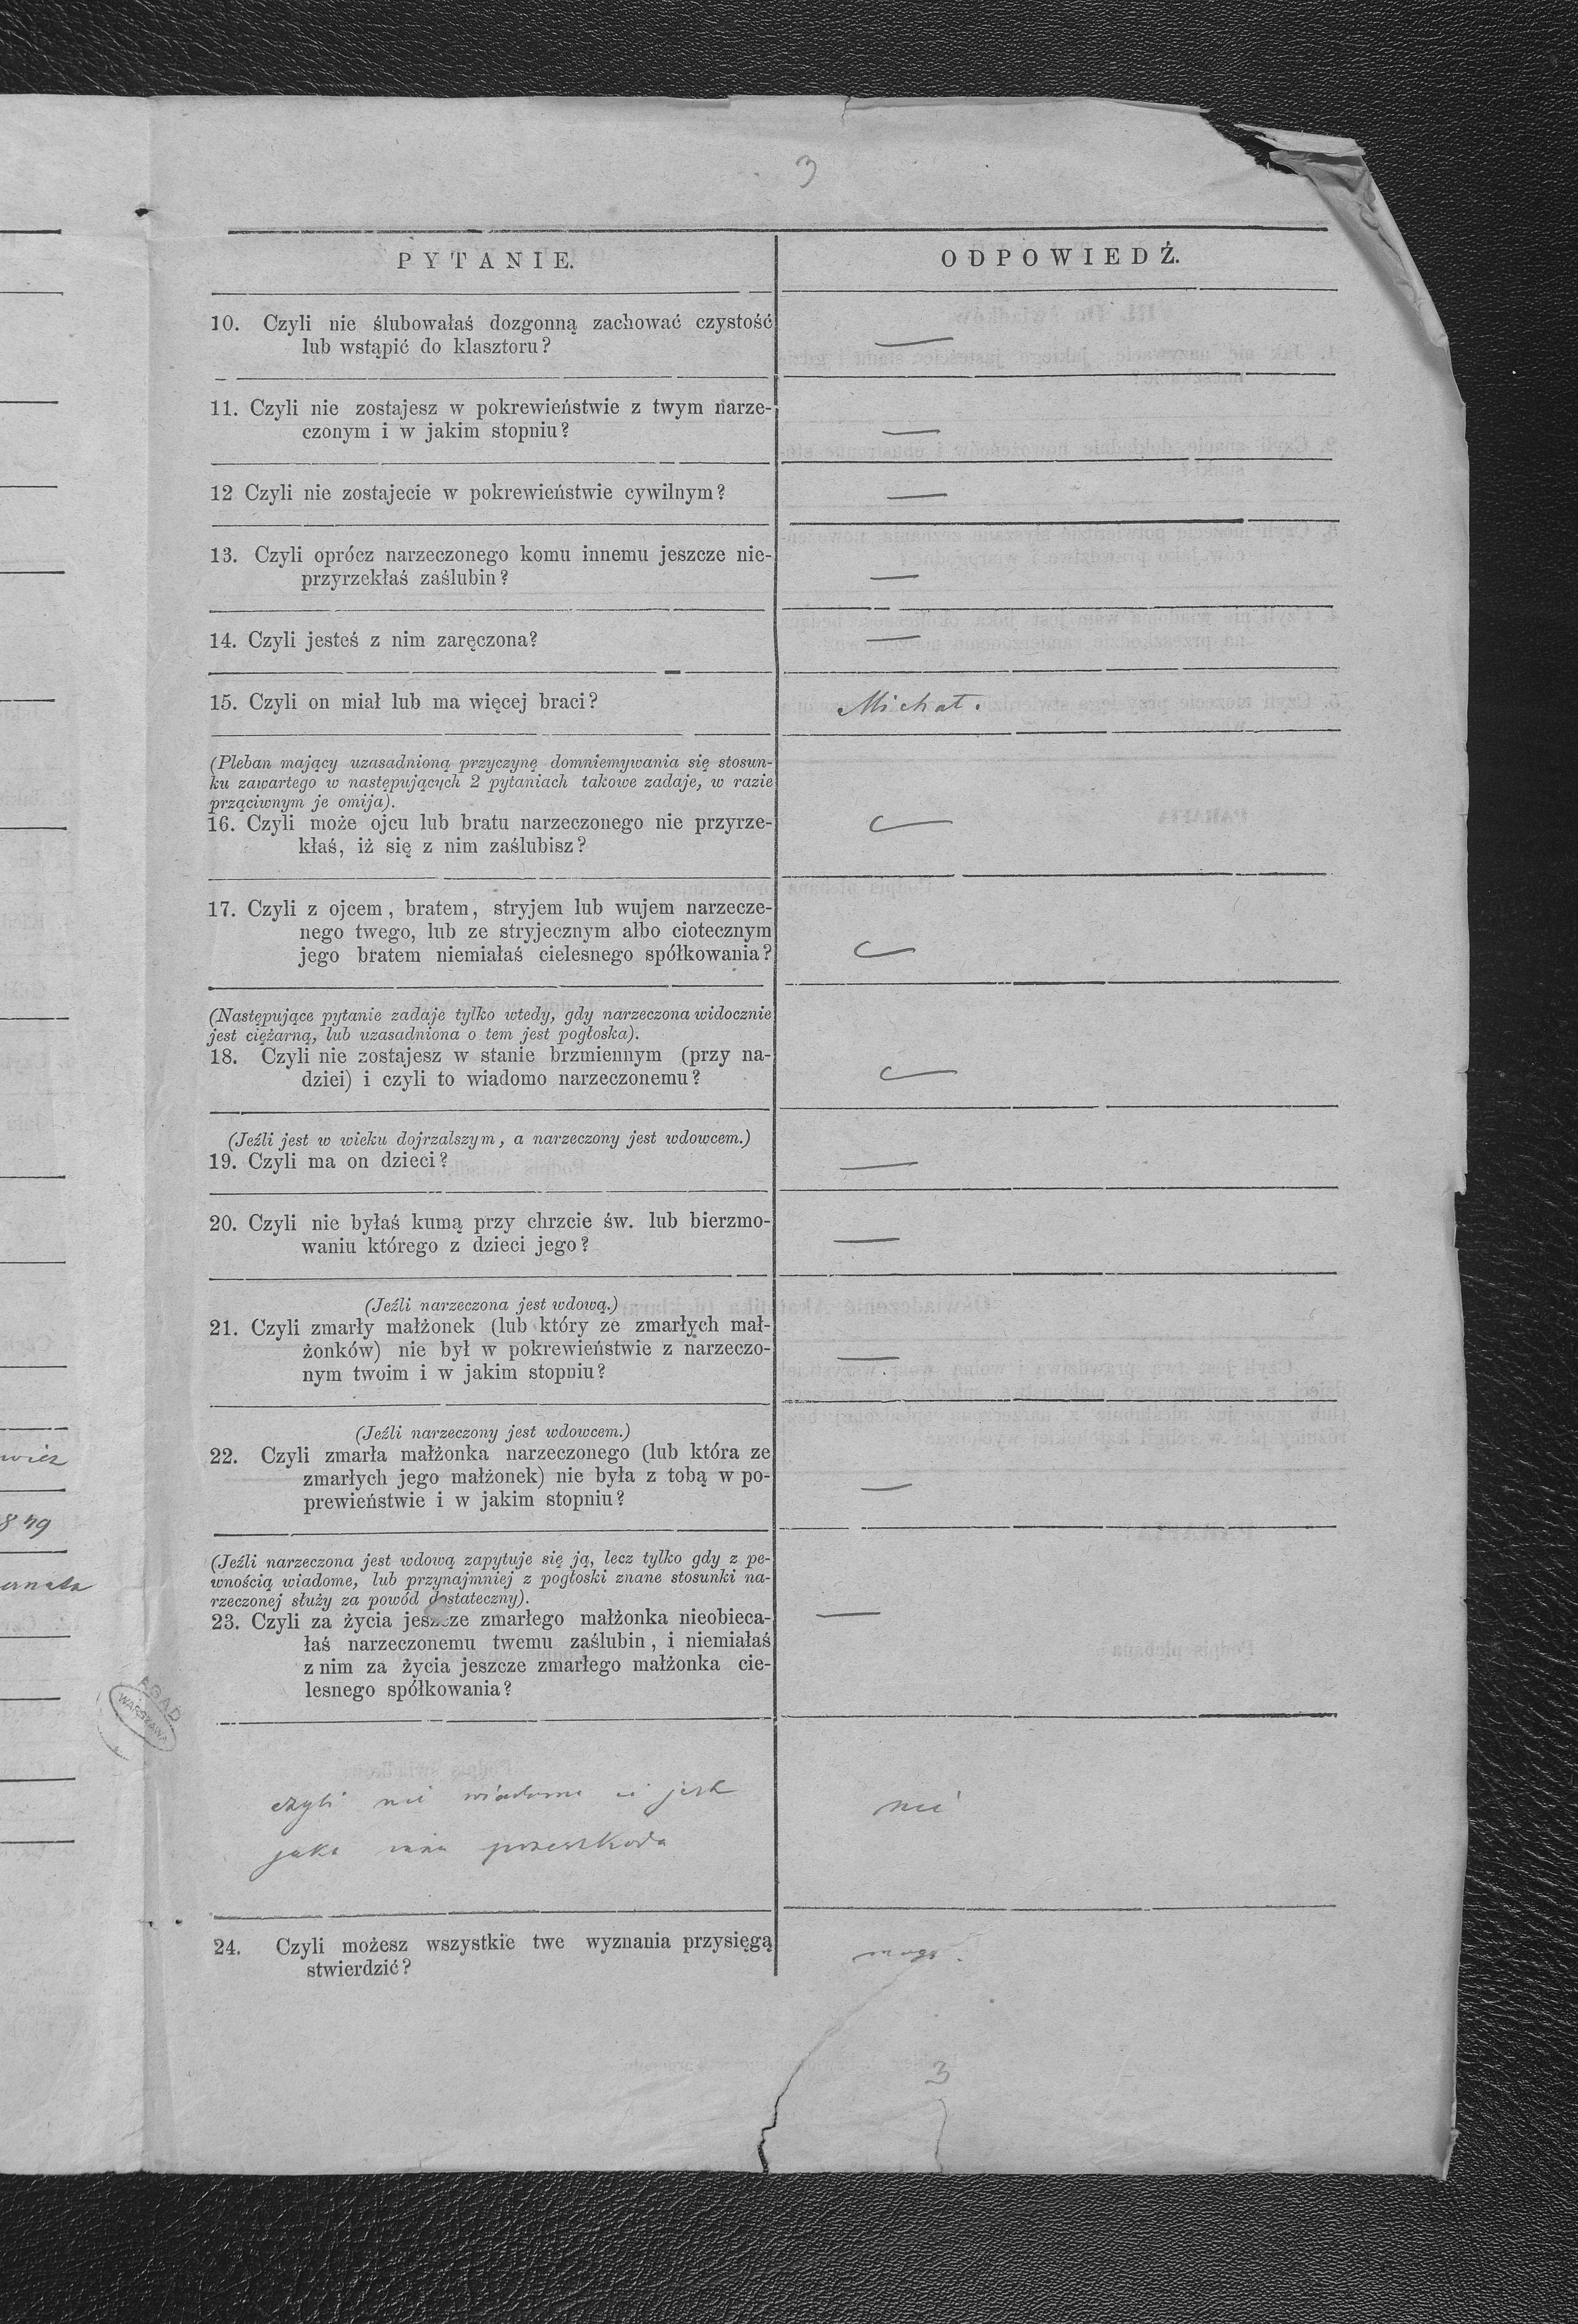 3
PYTANIE.
ODPOWIEDŹ.
10. Czyli nie ślubowałaś dozgonną zachować czystość
lub wstąpić do klasztoru?
—
11. Czyli nie zostajesz w pokrewieństwie z twym narze-
czonym i w jakim stopniu?
—
12 Czyli nie zostajecie w pokrewieństwie cywilnym?
—
13. Czyli oprócz narzeczonego komu innemu jeszcze nie-
przyrzekłaś zaślubin?
—
14. Czyli jesteś z nim zaręczona?
—
15. Czyli on miał lub ma więcej braci?
Michał.
(Pleban mający uzasadnioną przyczynę domniemywania się stosun-
ku zawartego w następujących 2 pytaniach takowe zadaje, w razie
prząciwnym je omija).
16. Czyli może ojcu lub bratu narzeczonego nie przyrze-
kłaś, iż się z nim zaślubisz?
—
17. Czyli z ojcem, bratem, stryjem lub wujem narzecze-
nego twego, lub ze stryjecznym albo ciotecznym
jego bratem niemiałaś cielesnego spółkowania?
—
(Następujące pytanie zadaje tylko wtedy, gdy narzeczona widocznie
jest ciężarną, lub uzasadniona o tem jest pogłoska).
18. Czyli nie zostajesz w stanie brzmiennym (przy na-
dziei) i czyli to wiadomo narzeczonemu?
—
(Jeźli jest w wieku dojrzalszym, a narzeczony jest wdowcem.)
19. Czyli ma on dzieci?
—
20. Czyli nie byłaś kumą przy chrzcie św. lub bierzmo-
waniu którego z dzieci jego?
—
(Jeźli narzeczona jest wdową.)
21. Czyli zmarły małżonek (lub który ze zmarłych mał-
żonków) nie był w pokrewieństwie z narzeczo-
nym twoim i w jakim stopniu?
—
(Jeźli narzeczony jest wdowcem.)
22. Czyli zmarła małżonka narzeczonego (lub która ze
zmarłych jego małżonek) nie była z tobą w po-
prewieństwie i w jakim stopniu?
—
(Jeźli narzeczona jest wdową zapytuje się ją, lecz tylko gdy z pe-
wnością wiadome, lub przynajmniej z pogłoski znane stosunki na-
rzeczonej służy za powód dostateczny).
23. Czyli za życia jeszcze zmarłego małżonka nieobieca-
łaś narzeczonemu twemu zaślubin, i niemiałaś
z nim za życia jeszcze zmarłego małżonka cie-
lesnego spółkowania?
—
AGAD
WARSZAWA
czyli nie wiadomo ci jest
jaka inna przeszkoda
nie
24. Czyli możesz wszystkie twe wyznania przysięgą
stwierdzić?
mogę.
3